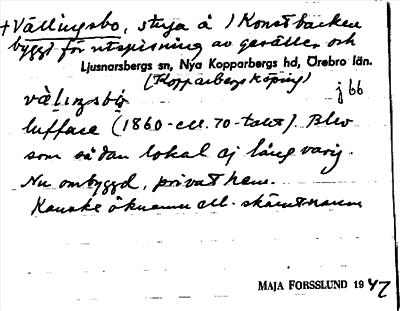 + Vällingsbo, stuga å ) Konstbacken
byggt för utspisning av gesäller och
Ljusnarsbergs sn, Nya Kopparbergs hd, Örebro län.
(Kopparbergs köping)
vä̀liŋsbo̩ j 66
luffare (1860- ell. 70-talet). Blev
som sådan lokal ej långvarig.
Nu ombyggd, privat hem.
Kanske öknamn ell. skämtnamn
MAJA FORSSLUND 1942